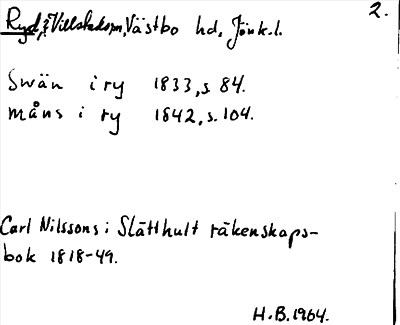 2.
Ryd, Villstads sn, Västbo hd, Jönk. l.
Swän i ry 1833, s. 84.
måns i ry 1842, s. 104.
Carl Nilssons i Slätthult räkenskaps-
bok 1818-49.
H.B. 1964.